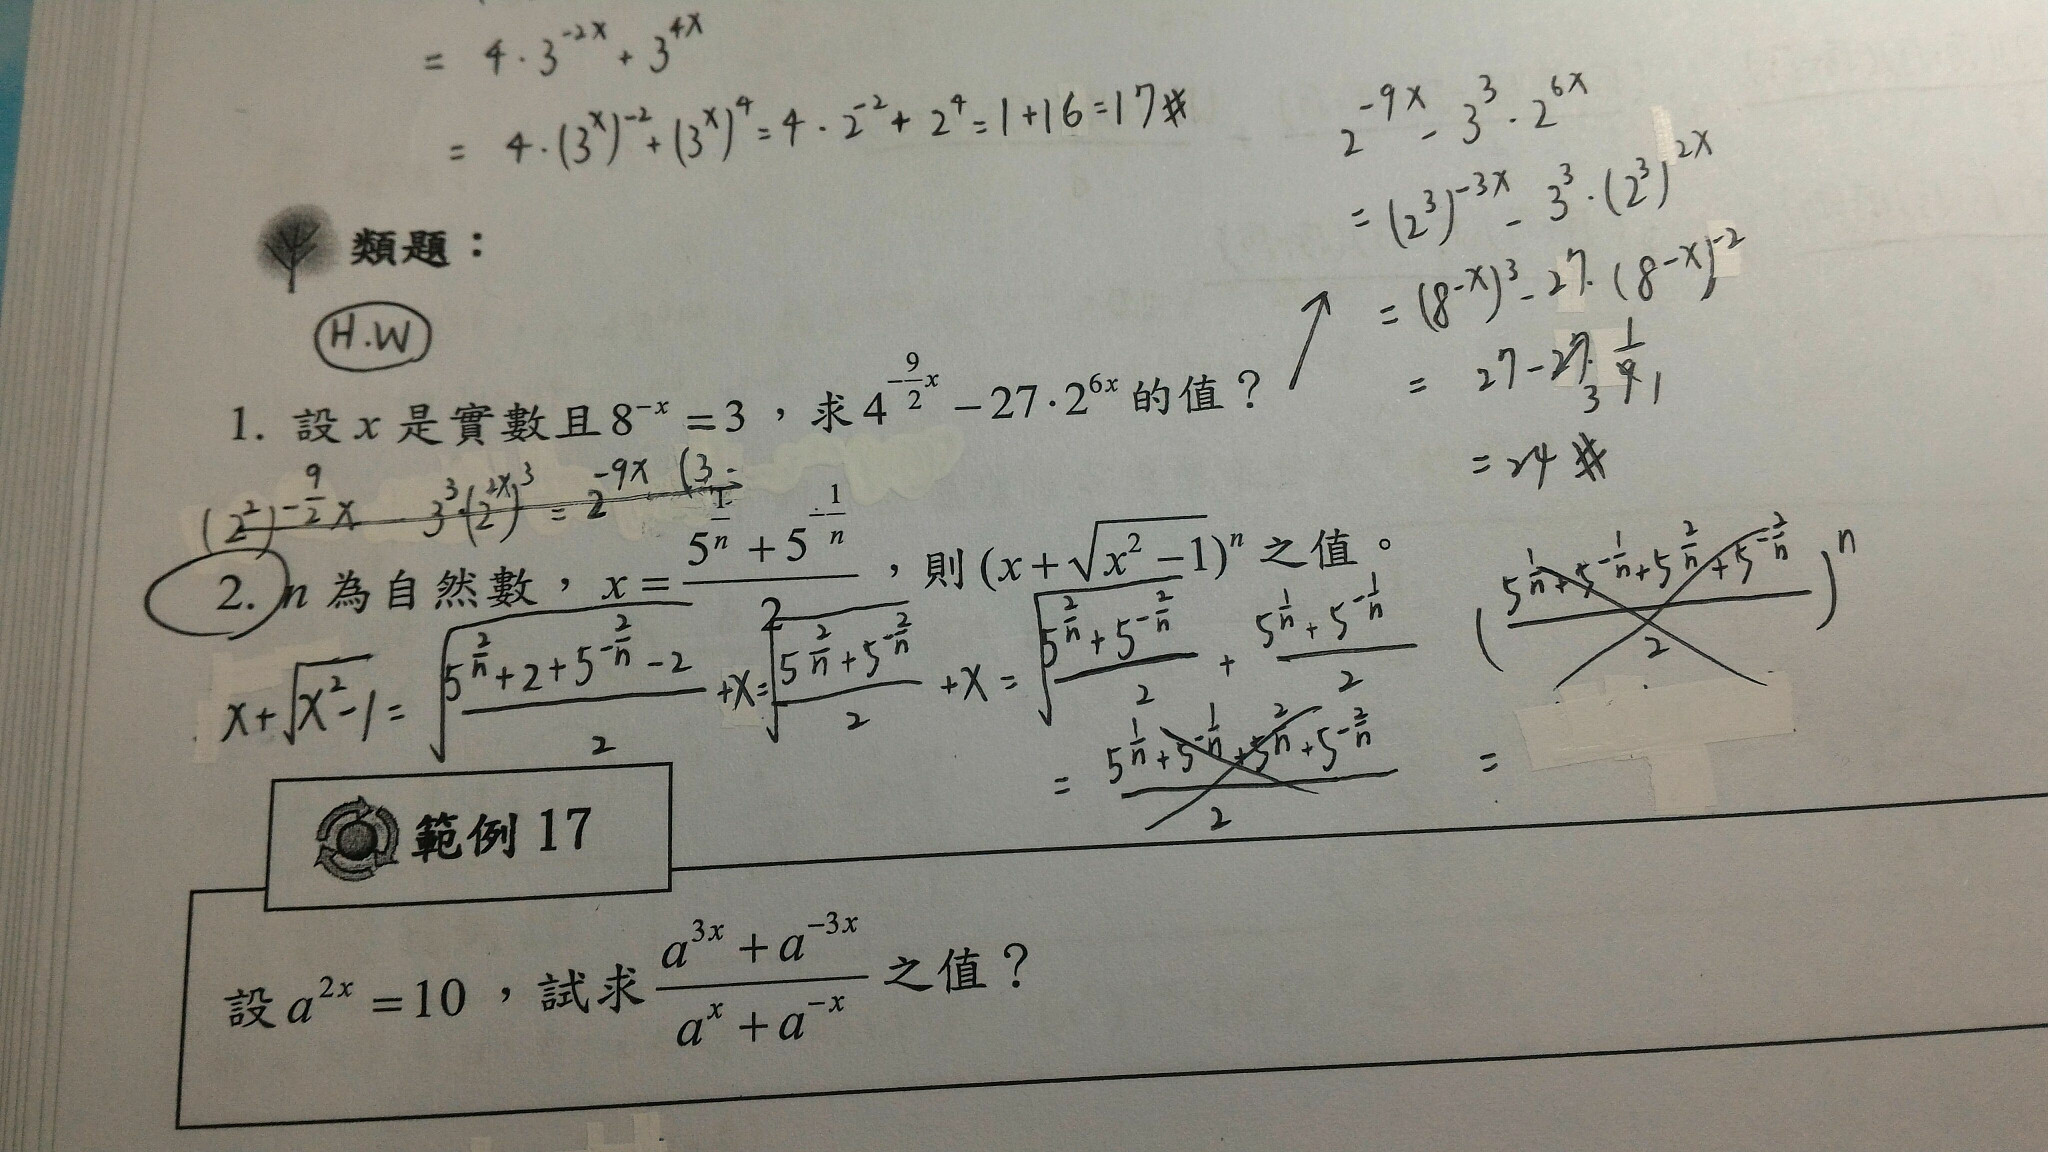 = 4·3^{-2x} + 3^{4x}
= 4·(3^x)^{-2} + (3^x)^4 = 4·2^{-2} + 2^4 = 1+16 = 17#
類題：
H.W
1. 設 x 是實數且 8^{-x} = 3，求 4^{-\frac{9}{2}x} − 27·2^{6x} 的值？
2^{-9x} - 3^3·2^{6x}
= (2^3)^{-3x} - 3^3·(2^3)^{2x}
= (8^{-x})^3 - 27·(8^{-x})^{-2}
= 27 - 27·\frac{1}{9}
3 1
= 24 #
(2^2)^{-\frac{9}{2}x} 3^3·(2^{2x})^3 = 2^{-9x} (3
2. n 為自然數，x = \frac{5^{\frac{1}{n}} + 5^{-\frac{1}{n}}}{2}，則 (x+\sqrt{x^2−1})^n 之值。
x+\sqrt{x^2-1} = \sqrt{\frac{5^{\frac{2}{n}}+2+5^{-\frac{2}{n}}-2}{2}} +x = \sqrt{\frac{5^{\frac{2}{n}}+5^{-\frac{2}{n}}}{2}} +x = \sqrt{\frac{5^{\frac{2}{n}}+5^{-\frac{2}{n}}}{2}} + \frac{5^{\frac{1}{n}}+5^{-\frac{1}{n}}}{2}
= \frac{5^{\frac{1}{n}}+5^{-\frac{1}{n}}+5^{\frac{2}{n}}+5^{-\frac{2}{n}}}{2}
(\frac{5^{\frac{1}{n}}+5^{-\frac{1}{n}}+5^{\frac{2}{n}}+5^{-\frac{2}{n}}}{2})^n
=
範例 17
設 a^{2x} = 10，試求 \frac{a^{3x} + a^{-3x}}{a^x + a^{-x}} 之值？